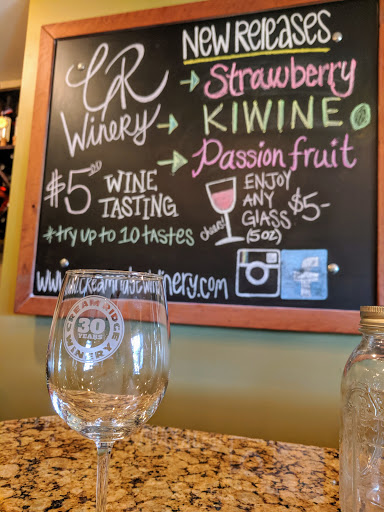 NEW Releases.
CR
Winery
Strawberry
KIWINE
Passion fruit
$5.00 WINE
TASTING
*try up to 10 tastes
cheers!
ENJOY
ANY
GLASS
(5oz)
$5-
f
CREAM RIDGE
30
YEARS
WINERY